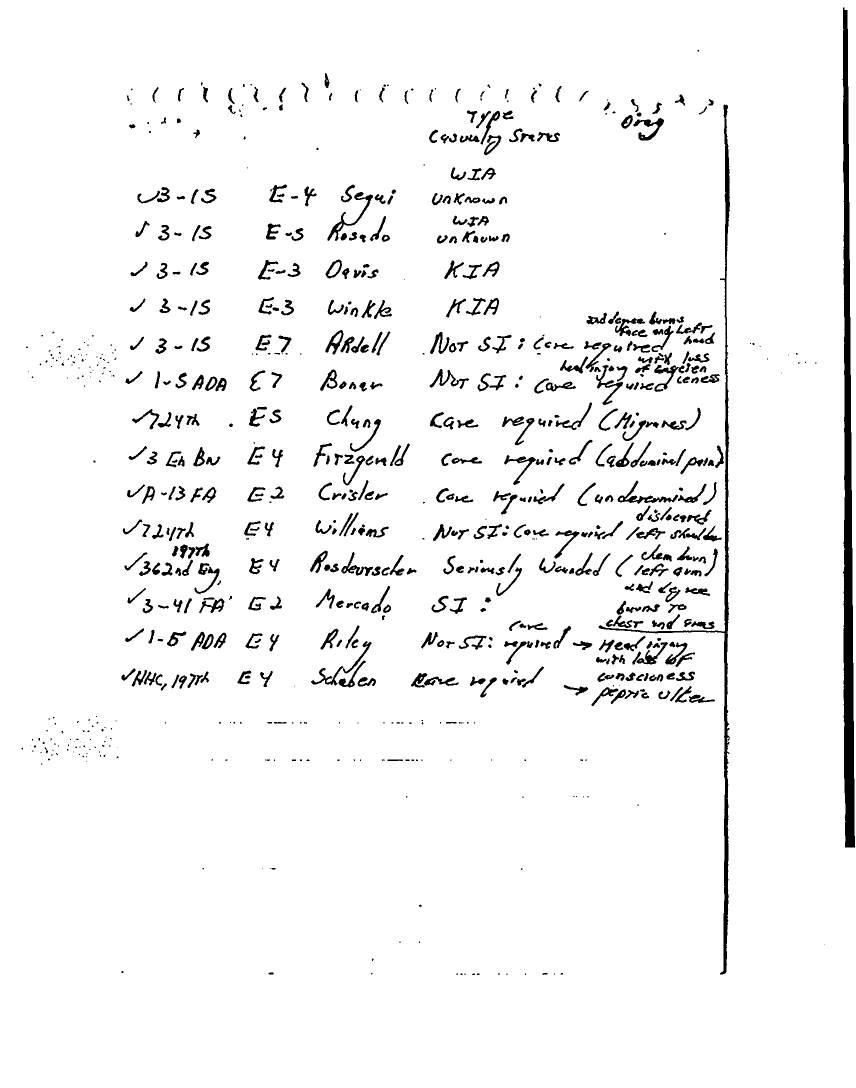 Type Diag
Casualty States
WIA
✓3-15 E-4 Segui Unknown
WIA
✓ 3-15 E-5 Rosado unknown
✓ 3-15 E-3 Davis KIA
✓ 3-15 E-3 Winkle KIA
2nd degree burns
face and Left
✓ 3-15 E7 ARdell Not SI: Care required hand
head injury with loss of
✓ 1-5 ADA E7 Boner Not SI: Care required
✓724th E5 Chung Care required (Migranes)
✓3 En BN E4 Fitzgerald Care required (abdominal pain)
✓A-13 FA E2 Crisler Care required (undetermined)
dislocated
✓724th E4 Williams Not SI: Care required left shoulder
197th
✓362nd Eng E4 Rosdeutscher Seriously Wounded (chem burn left arm)
✓3-41 FA E2 Mercado SI: 2nd degree
burns to
chest and arms
✓1-5 ADA E4 Riley Not SI: care required → Head injury
with loss of
consciones
✓HHC, 197th E4 Schaben Care required → peptic ulker